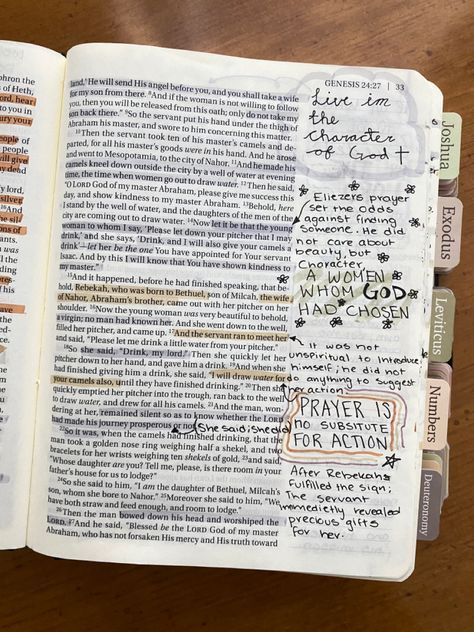 GENESIS 24:27 | 33
phron the
s of Heth,
ord, hear
to you in
people of
will give
my dead
ly lord,
silver.
and
the sil-
sons of
rants.
was
land,’ He will send His angel before you, and you shall take a wife
for my son from there. 8And if the woman is not willing to follow
you, then you will be released from this oath; only do not take my
son back there.” 9So the servant put his hand under the thigh of
Abraham his master, and swore to him concerning this matter.
10Then the servant took ten of his master’s camels and de-
parted, for all his master’s goods were in his hand. And he arose
and went to Mesopotamia, to the city of Nahor. 11And he made his
camels kneel down outside the city by a well of water at evening
time, the time when women go out to draw water. 12Then he said,
“O LORD God of my master Abraham, please give me success this
day, and show kindness to my master Abraham. 13Behold, here
I stand by the well of water, and the daughters of the men of the
city are coming out to draw water. 14Now let it be that the young
woman to whom I say, ‘Please let down your pitcher that I may
drink,’ and she says, ‘Drink, and I will also give your camels a
drink’—let her be the one You have appointed for Your servant
Isaac. And by this I will know that You have shown kindness to
my master.”
15And it happened, before he had finished speaking, that be-
hold, Rebekah, who was born to Bethuel, son of Milcah, the wife
of Nahor, Abraham’s brother, came out with her pitcher on her
shoulder. 16Now the young woman was very beautiful to behold,
a virgin; no man had known her. And she went down to the well,
filled her pitcher, and came up. 17And the servant ran to meet her
and said, “Please let me drink a little water from your pitcher.”
18So she said, “Drink, my lord.” Then she quickly let her
pitcher down to her hand, and gave him a drink. 19And when she
had finished giving him a drink, she said, “I will draw water for
your camels also, until they have finished drinking.” 20Then she
quickly emptied her pitcher into the trough, ran back to the well
to draw water, and drew for all his camels. 21And the man, won-
dering at her, remained silent so as to know whether the LORD
had made his journey prosperous or not.
She said/she did
22So it was, when the camels had finished drinking, that the
man took a golden nose ring weighing half a shekel, and two
bracelets for her wrists weighing ten shekels of gold, 23and said,
“Whose daughter are you? Tell me, please, is there room in your
father’s house for us to lodge?”
24So she said to him, “I am the daughter of Bethuel, Milcah’s
son, whom she bore to Nahor.” 25Moreover she said to him, “We
have both straw and feed enough, and room to lodge.”
26Then the man bowed down his head and worshiped the
LORD. 27And he said, “Blessed be the LORD God of my master
Abraham, who has not forsaken His mercy and His truth toward
Live in
the
character
of God
Eliezers prayer
set the odds
against finding
someone. He did
not care about
beauty, but
Character
A WOMEN
WHOM GOD
HAD CHOSEN
It was not
unspiritual to Introduce
himself; he did not
do anything to suggest
her action
PRAYER IS
no SUBSTITUTE
FOR ACTION
After Rebekah
fulfilled the sign;
The servant
immedietly revealed
precious gifts
for her.
Joshua
Exodus
Leviticus
Numbers
Deuteronomy